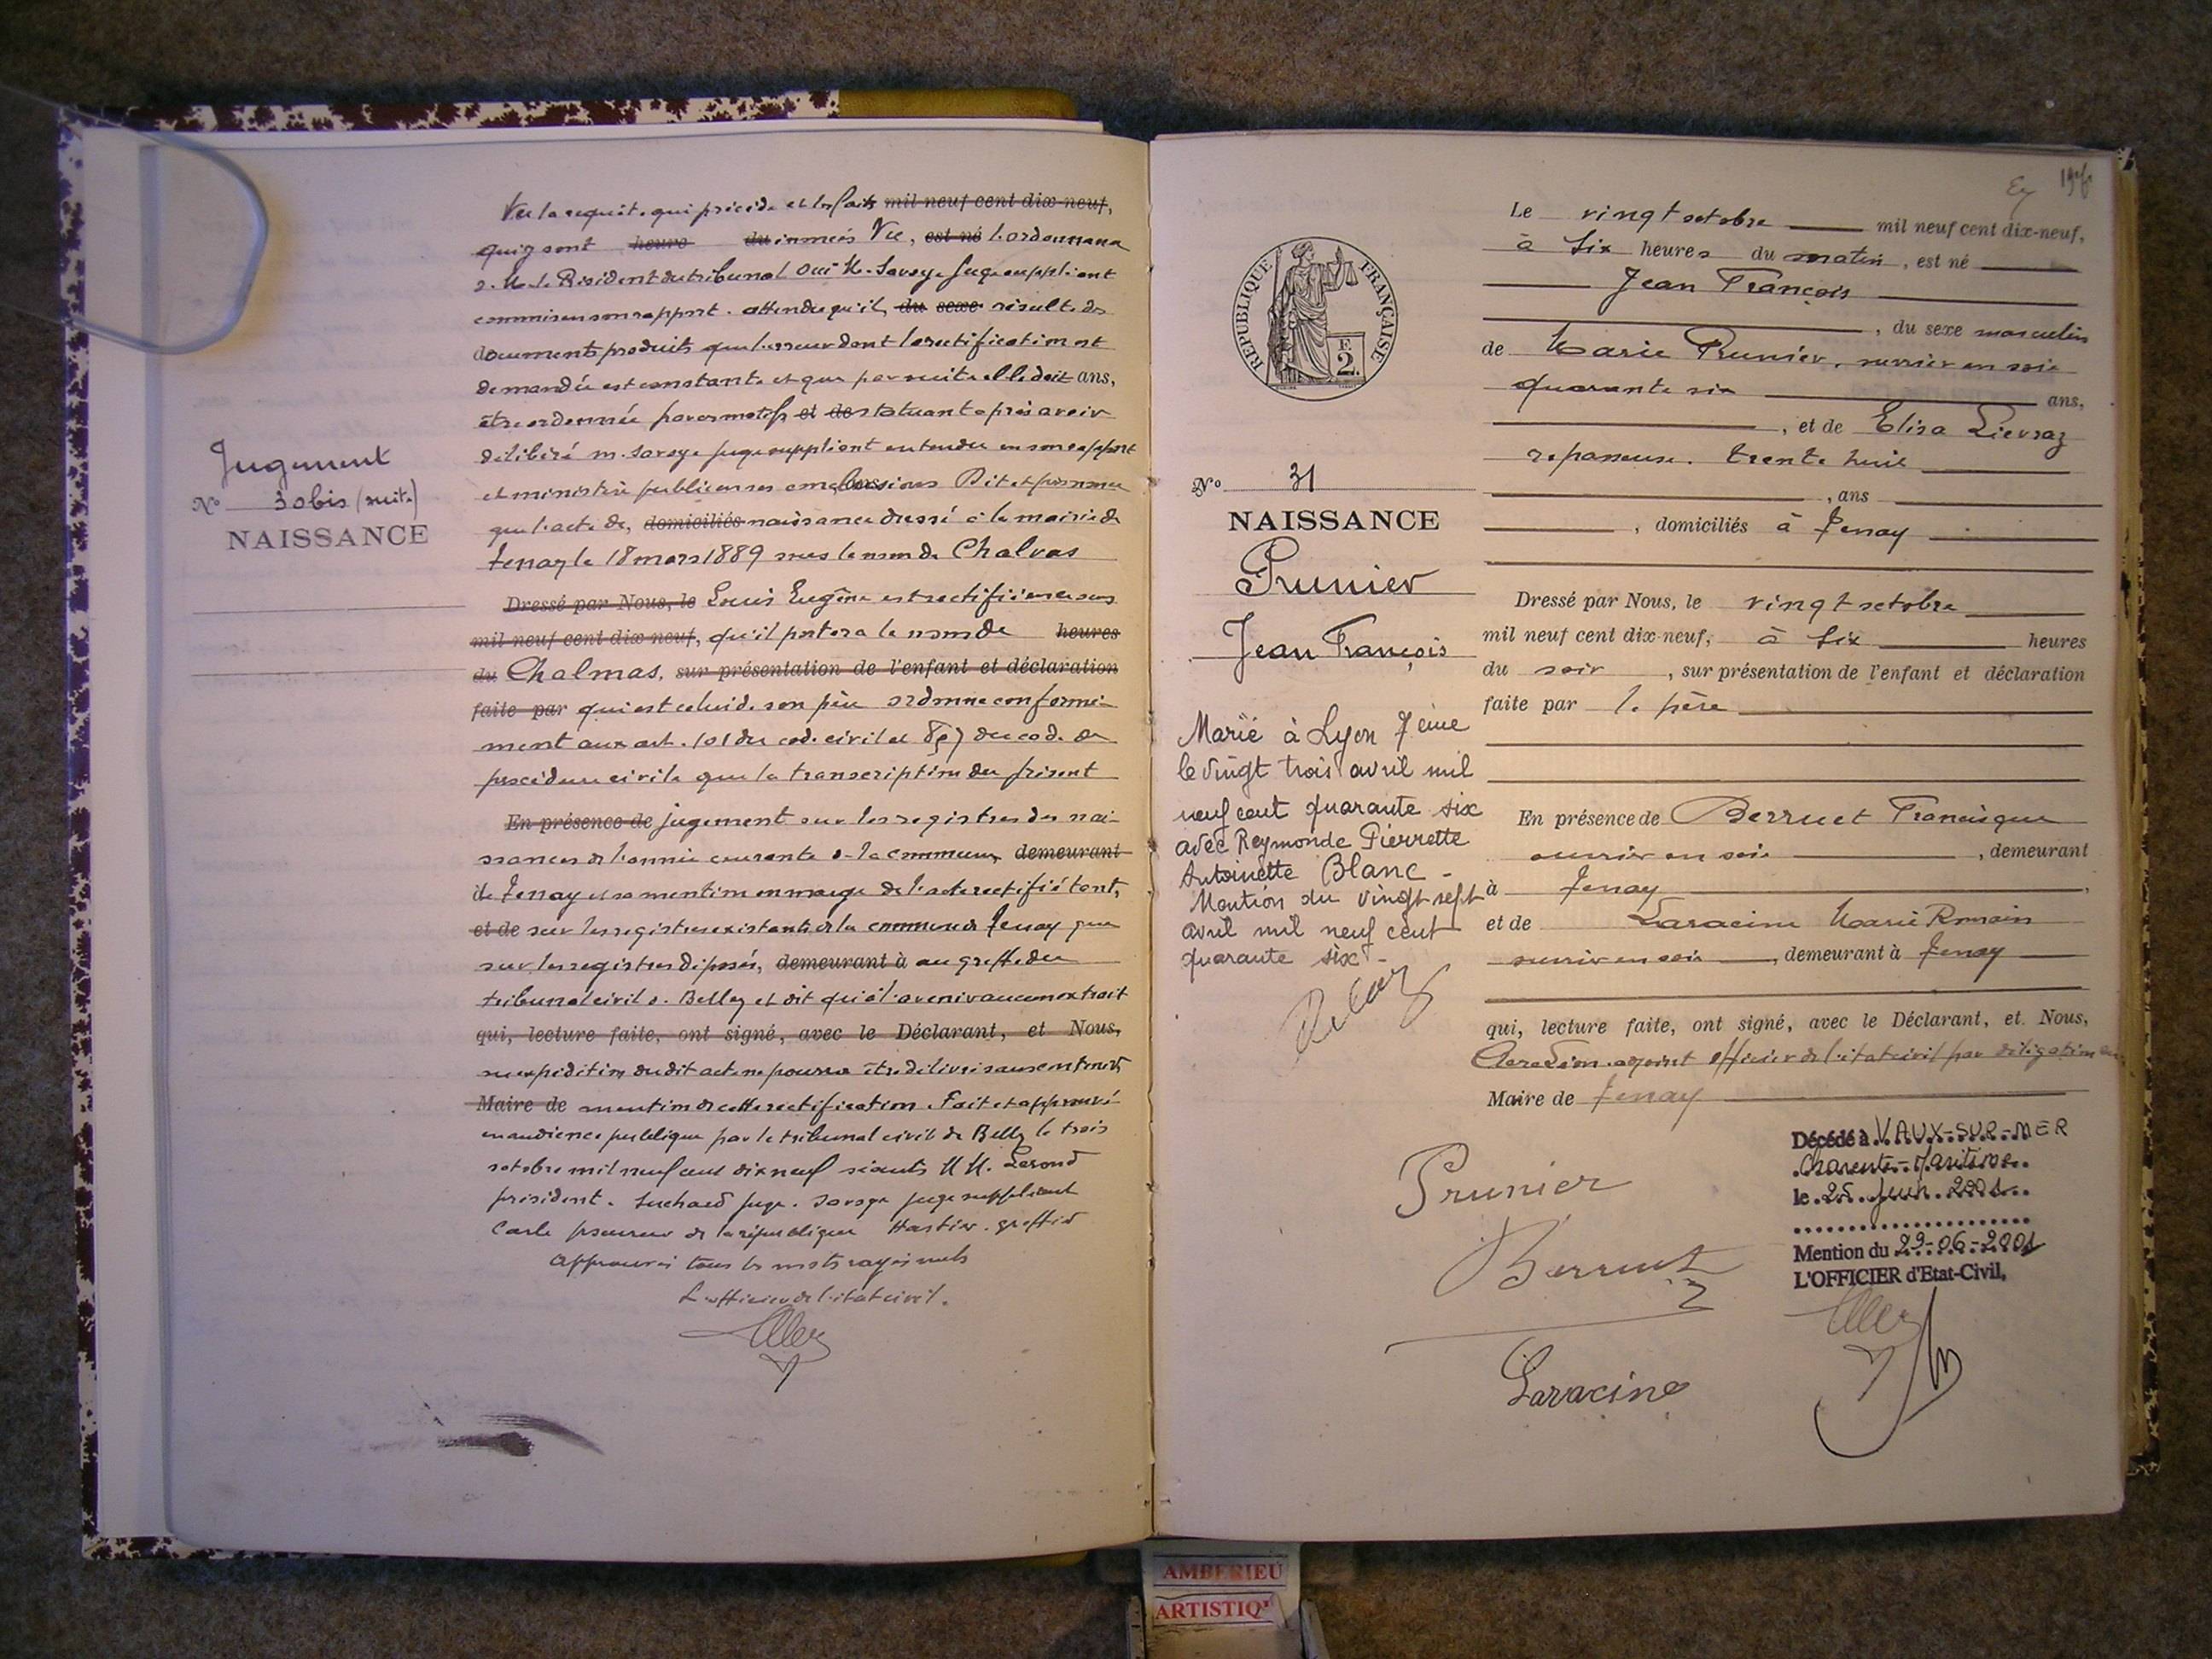 Jugement
N° 30bis (suite)
NAISSANCE
Vu la requête qui précède et les faits mil neuf cent dix-neuf,
qui y sont heure du innmeés Vu, est né l'ordonnance
de M. le Président du tribunal Oui M. Savoye juge suppléant
commis en son rapport. attendu qu'il du sexe résulte des
documents produits que l'erreur dont la rectification est
demandée est constante et que par suite elle doit ans,
être ordonnée par ces motifs et de statuant après avoir
délibéré m. Savoye juge suppléant entendu en son rapport
et ministère public en ses conclusions Dit et prononce
que l'acte de, domiciliés naissance dressé à la mairie de
Tenay le 18 mars 1889 sous le nom de Chalvas
Dressé par Nous, le Louis Eugène est rectifié en ce sens
mil neuf cent dix-neuf, qu'il portera le nom de heures
du Chalmas, sur présentation de l'enfant et déclaration
faite par qui est celui de son père ordonne conformé-
ment aux art. 101 du code civil et 857 du code de
procédure civile que la transcription du présent
En présence de jugement sur les registres des nai-
ssances de l'année courante de la commune demeurant
de Tenay et sa mention en marge de l'acte rectifié tant,
et de sur les registres existants de la commune de Tenay que
sur les registres déposés, demeurant à au greffe du
tribunal civil de Belley et dit qu'à l'avenir aucun extrait
qui, lecture faite, ont signé, avec le Déclarant, et Nous,
ou expédition du dit acte ne pourra être délivré sans contenir
Maire de mention de cette rectification. Fait et approuvé
en audience publique par le tribunal civil de Belley le trois
octobre mil neuf cent dix neuf séants M M. Lerond
président. Suchard juge. Savoye juge suppléant
Carle procureur de la république Hastier. greffier
Approuvés tous les mots rayés nuls
L'officier de l'état civil.
RÉPUBLIQUE FRANÇAISE
E
2.
N° 31
NAISSANCE
Prunier
Jean François
Marié à Lyon 7ème
le vingt trois avril mil
neuf cent quarante six
avec Reymonde Pierrette
Antoinette Blanc -
Mention du vingt sept
avril mil neuf cent
quarante six -
Le vingt octobre mil neuf cent dix-neuf,
à six heures du matin, est né
Jean François
, du sexe masculin
de Marie Prunier, ouvrier en soie
quarante six ans,
, et de Elisa Lievraz
repasseuse. trente huit
, ans
, domiciliés à Tenay
Dressé par Nous, le vingt octobre
mil neuf cent dix-neuf, à six heures
du soir, sur présentation de l'enfant et déclaration
faite par le père
En présence de Berruet Francisque
ouvrier en soie, demeurant
à Tenay,
et de Laracine Marie Romain
ouvrier en soie, demeurant à Tenay
qui, lecture faite, ont signé, avec le Déclarant, et Nous,
adjoint officier de l'état civil par délégation du
Maire de Tenay
Prunier
Berruet
Laracine
Décédé à VAUX-SUR-MER
Charente-Maritime
le 25 Juin 2001
Mention du 29-06-2001
L'OFFICIER d'Etat-Civil,
AMBERIEU
ARTISTIQ